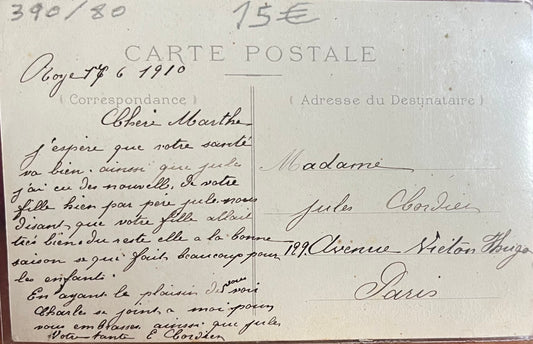 390/80
15€
CARTE POSTALE
Roye 17 6 1910
(Correspondance)
(Adresse du Destinataire)
Chère Marthe
j'espère que votre santé
va bien. ainsi que jules
j'ai eu des nouvelle, de votre
fille hier par père jule, nous
disant que votre fille allait
très bien, du reste elle a la bonne
saison se qui fait beaucoup pour
les enfants.
En ayant le plaisir de vous voir
Charles se joint a moi pour
vous embrasser ainsi que jules
Votre tante E Cordier
Madame
jules Cordier
199. Avenue Victor Hugo
Paris